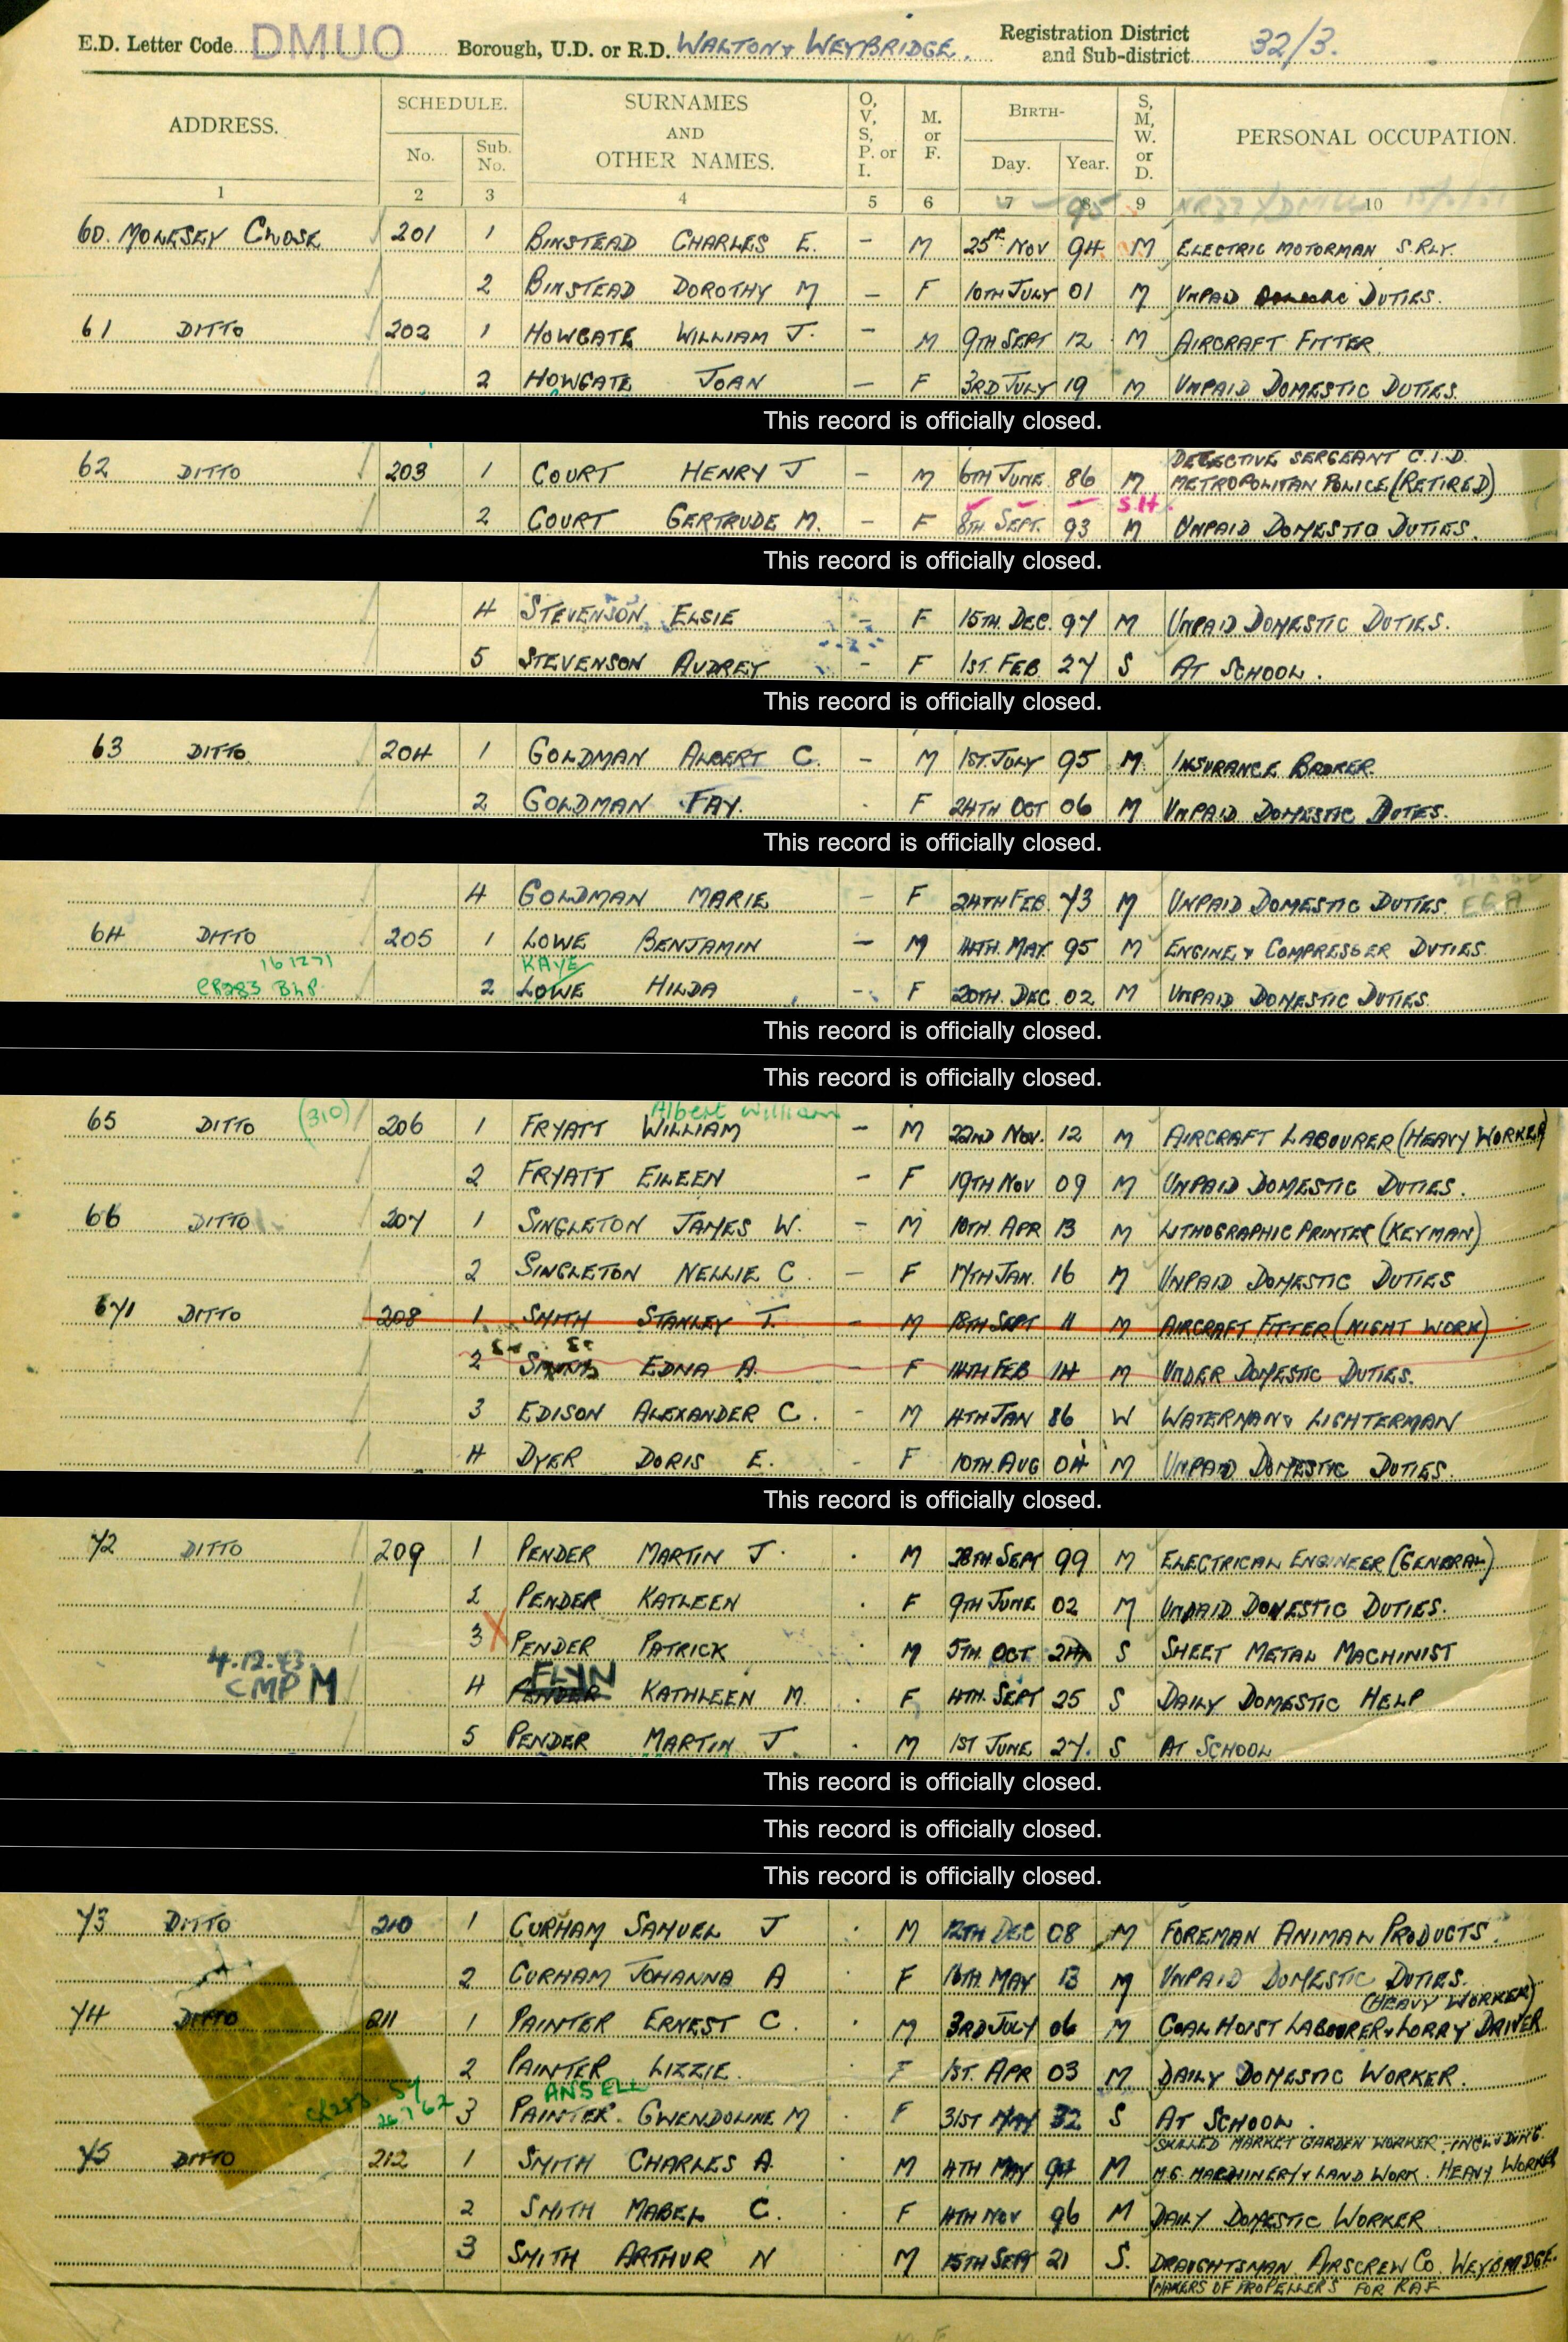 E.D. Letter Code DMUO Borough, U.D. or R.D. WALTON & WEYBRIDGE. Registration District and Sub-district 32/3.
ADDRESS. SCHEDULE. No. Sub. No. SURNAMES AND OTHER NAMES. O, V, S, P. or I. M. or F. BIRTH- Day. Year. S, M, W. or D. PERSONAL OCCUPATION.
1 2 3 4 5 6 7 8 9 10
95
60. MOLESEY CLOSE 201 1 BINSTEAD CHARLES E. – M 25th NOV 94 M ELECTRIC MOTORMAN S. RLY.
2 BINSTEAD DOROTHY M – F 10TH JULY 01 M UNPAID DOMESTIC DUTIES.
61 DITTO 202 1 HOWGATE WILLIAM J. – M 9TH SEPT 12 M AIRCRAFT FITTER.
2 HOWGATE JOAN – F 3RD JULY 19 M UNPAID DOMESTIC DUTIES.
This record is officially closed.
62 DITTO 203 1 COURT HENRY J – M 6TH JUNE 86 M DETECTIVE SERGEANT C.I.D.
METROPOLITAN POLICE (RETIRED)
S.H.
2 COURT GERTRUDE M. – F 8TH SEPT. 93 M UNPAID DOMESTIC DUTIES.
This record is officially closed.
4 STEVENSON ELSIE – F 15TH. DEC. 97 M UNPAID DOMESTIC DUTIES.
5 STEVENSON AUDREY – F 1ST. FEB 27 S AT SCHOOL.
This record is officially closed.
63 DITTO 204 1 GOLDMAN ALBERT C. – M 1ST JULY 95 M INSURANCE BROKER
2 GOLDMAN FAY. . F 24TH OCT 06 M UNPAID DOMESTIC DUTES.
This record is officially closed.
4 GOLDMAN MARIE – F 24TH FEB. 73 M UNPAID DOMESTIC DUTIES.
64 DITTO 205 1 LOWE BENJAMIN – M 14TH. MAY 95 M ENGINE & COMPRESSER DUTIES.
161271 KAYE
CR283 BLP 2 LOWE HILDA – F 20TH. DEC. 02 M UNPAID DOMESTIC DUTIES.
This record is officially closed.
This record is officially closed.
(310) Albert William
65 DITTO 206 1 FRYATT WILLIAM – M 22ND NOV. 12 M AIRCRAFT LABOURER (HEAVY WORKER)
2 FRYATT EILEEN – F 19TH NOV 09 M UNPAID DOMESTIC DUTIES.
66 DITTO 207 1 SINGLETON JAMES W. – M 10TH. APR 13 M LITHOGRAPHIC PRINTER (KEYMAN)
2 SINGLETON NELLIE C – F 17TH JAN. 16 M UNPAID DOMESTIC DUTIES
671 DITTO 208 1 SMITH STANLEY T. – M 18TH SEPT 11 M AIRCRAFT FITTER (NIGHT WORK)
2 SMITH EDNA A. – F 14TH FEB 14 M UNDER DOMESTIC DUTIES.
3 EDISON ALEXANDER C. – M 4TH JAN 86 W WATERMAN & LIGHTERMAN
4 DYER DORIS E. – F 10TH. AUG 04 M UNPAID DOMESTIC DUTIES.
This record is officially closed.
72 DITTO 209 1 PENDER MARTIN J. . M 28TH. SEPT 99 M ELECTRICAL ENGINEER (GENERAL)
2 PENDER KATLEEN . F 9TH JUNE 02 M UNPAID DOMESTIC DUTIES.
3 X PENDER PATRICK . M 5TH. OCT 24 S SHEET METAL MACHINIST
4.12.43. FLYN
CMP M 4 PENDER KATHLEEN M. . F 4TH. SEPT 25 S DAILY DOMESTIC HELP
5 PENDER MARTIN J. . M 1ST JUNE 27. S AT SCHOOL
This record is officially closed.
This record is officially closed.
This record is officially closed.
73 DITTO 210 1 CURHAM SAMUEL J . M 12TH DEC 08 M FOREMAN ANIMAN PRODUCTS.
2 CURHAM JOHANNA A . F 16TH MAY 13 M UNPAID DOMESTIC DUTIES.
(HEAVY WORKER)
74 DITTO 211 1 PAINTER ERNEST C. . M 3RD JULY 06 M COAL HOIST LABOURER & LORRY DRIVER
2 PAINTER LIZZIE. . F 1ST. APR 03 M DAILY DOMESTIC WORKER.
ANSELL
CR283 26 7 62 3 PAINTER. GWENDOLINE M . F 31ST MAY 32 S AT SCHOOL.
SKILLED MARKET GARDEN WORKER. INCLUDING
75 DITTO 212 1 SMITH CHARLES A. . M 4TH MAY 94 M M.G. MACHINERY & LAND WORK. HEAVY WORKER
2 SMITH MABEL C. . F 4TH NOV 96 M DAILY DOMESTIC WORKER
3 SMITH ARTHUR N M 15TH SEPT 21 S. DRAUGHTSMAN. AIRSCREW CO. WEYBRIDGE.
MAKERS OF PROPELLERS FOR RAF